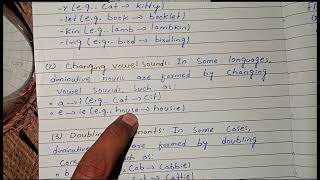 -y (e.g.. Cat → kitty)
-let (e.g. book → booklet)
-kin (e.g.. lamb → lambkin)
-ling (e.g.. bird → birdling)
(2) Changing vowel sounds: In some languages,
diminutive nouns are formed by changing
vowel sounds, such as:
• a → i (e.g.. Cat → Cit)
• e → ie (e.g.. house → housie)
(3) Doubling In Some Cases,
diminutive are formed by doubling
Con such as:
• b Cab → Cabbie)